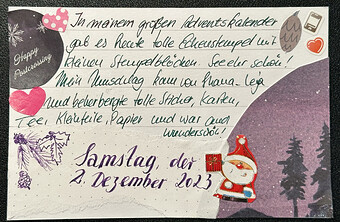 In meinem großen Adventskalender
gab es heute tolle Eckenstempel mit
kleinen Stempelblöcken. Sehr schön!
Mein Umschlag kam von
und beherbergte tolle Sticker, Karten,
Tee, Klebefolie, Papier und war auch
wunderschön!
Happy
Postcrossing
Samstag, der
2. Dezember 2023